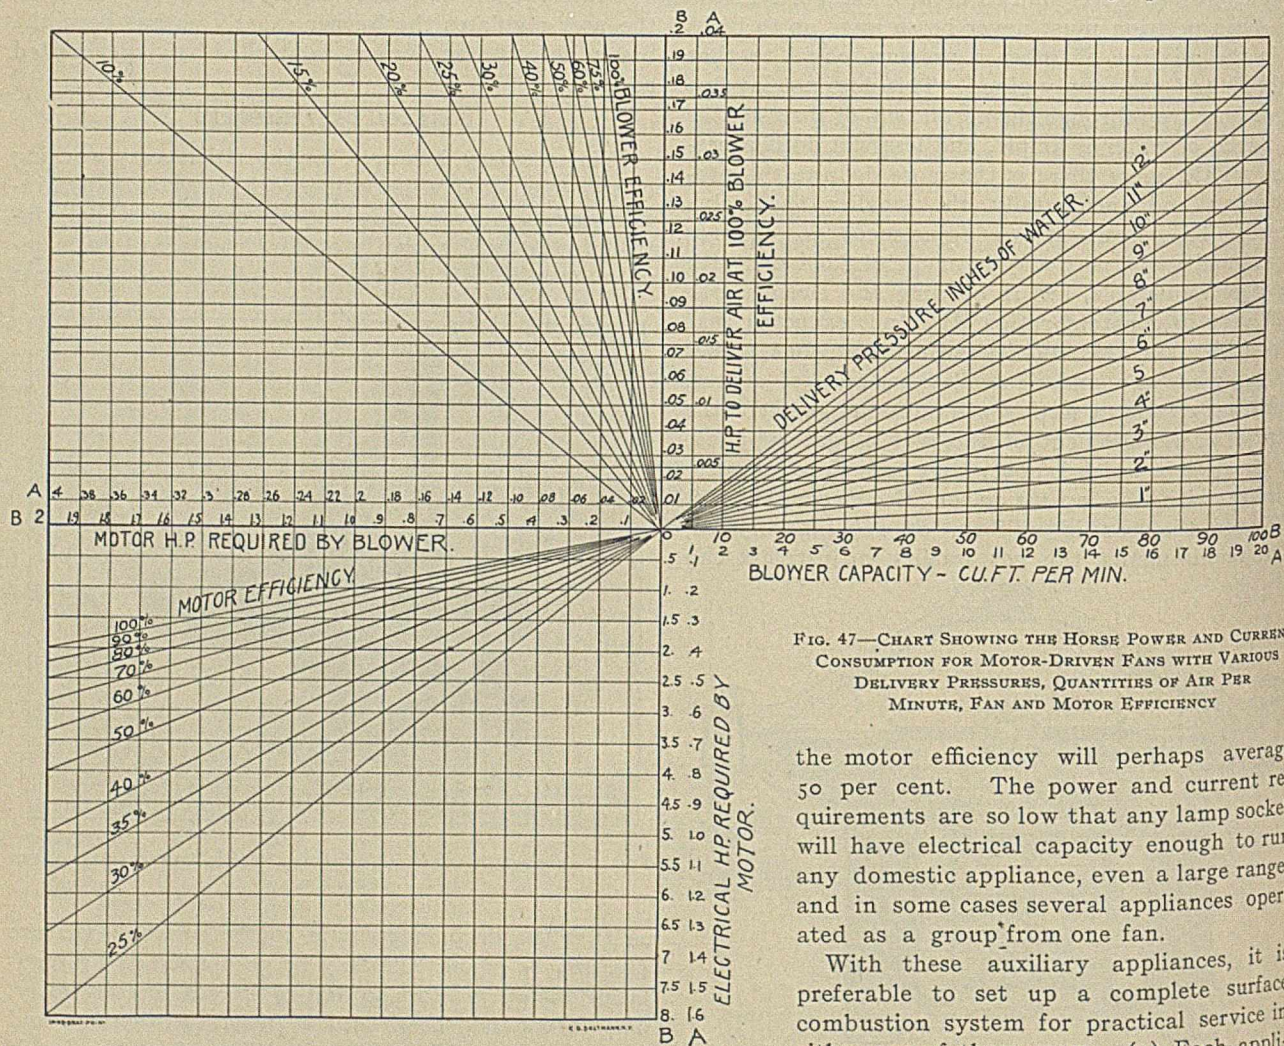 B A
.2 .04
.19
.18
.035
.17
.16
.15 .03
.14
.13
.025
.12
.11
.10 .02
.09
.08
.015
.07
.06
.05 .01
.04
.03
.005
.02
.01
10% 15% 20% 25% 30% 40% 50% 60% 75% 100%
BLOWER EFFICIENCY.
H.P. TO DELIVER AIR AT 100% BLOWER
EFFICIENCY.
DELIVERY PRESSURE INCHES OF WATER.
12"
11"
10"
9"
8"
7"
6"
5
4"
3"
2"
1"
A .4 .38 .36 .34 .32 .3 .28 .26 .24 .22 .2 .18 .16 .14 .12 .10 .08 .06 .04 .02
B 2 1.9 1.8 1.7 1.6 1.5 1.4 1.3 1.2 1.1 1.0 .9 .8 .7 .6 .5 .4 .3 .2 .1 0
MOTOR H.P. REQUIRED BY BLOWER.
10 20 30 40 50 60 70 80 90 100 B
1 2 3 4 5 6 7 8 9 10 11 12 13 14 15 16 17 18 19 20 A
BLOWER CAPACITY - CU. FT. PER MIN.
MOTOR EFFICIENCY.
100%
90%
80%
70%
60%
50%
40%
35%
30%
25%
.5 .1
1. .2
1.5 .3
2. .4
2.5 .5
3. .6
3.5 .7
4. .8
4.5 .9
5. 1.0
5.5 1.1
6. 1.2
6.5 1.3
7 1.4
7.5 1.5
8. 1.6
B A
ELECTRICAL H.P. REQUIRED BY
MOTOR.
FIG. 47—CHART SHOWING THE HORSE POWER AND CURREN
CONSUMPTION FOR MOTOR-DRIVEN FANS WITH VARIOUS
DELIVERY PRESSURES, QUANTITIES OF AIR PER
MINUTE, FAN AND MOTOR EFFICIENCY
the motor efficiency will perhaps averag
50 per cent. The power and current re
quirements are so low that any lamp socke
will have electrical capacity enough to run
any domestic appliance, even a large range
and in some cases several appliances oper
ated as a group from one fan.
With these auxiliary appliances, it is
preferable to set up a complete surface
combustion system for practical service in